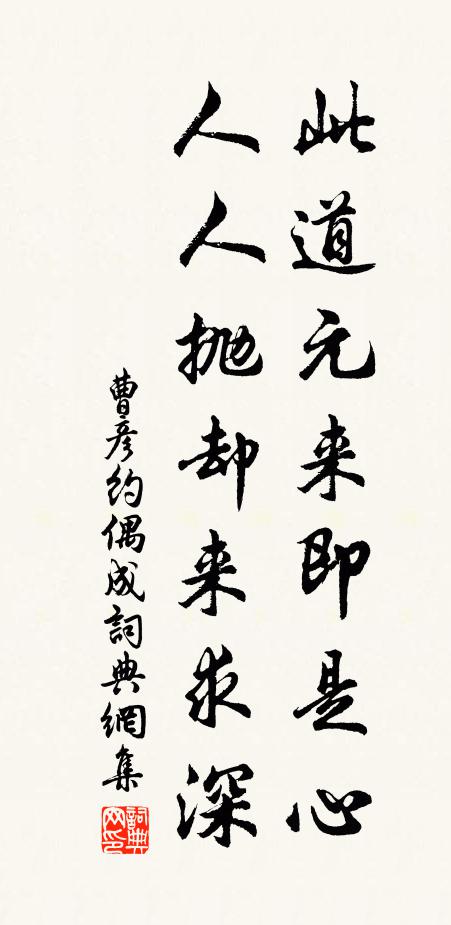 此道元来即是心
人人抛却来求深
曹彦約偶成詞典網集
詞典网印